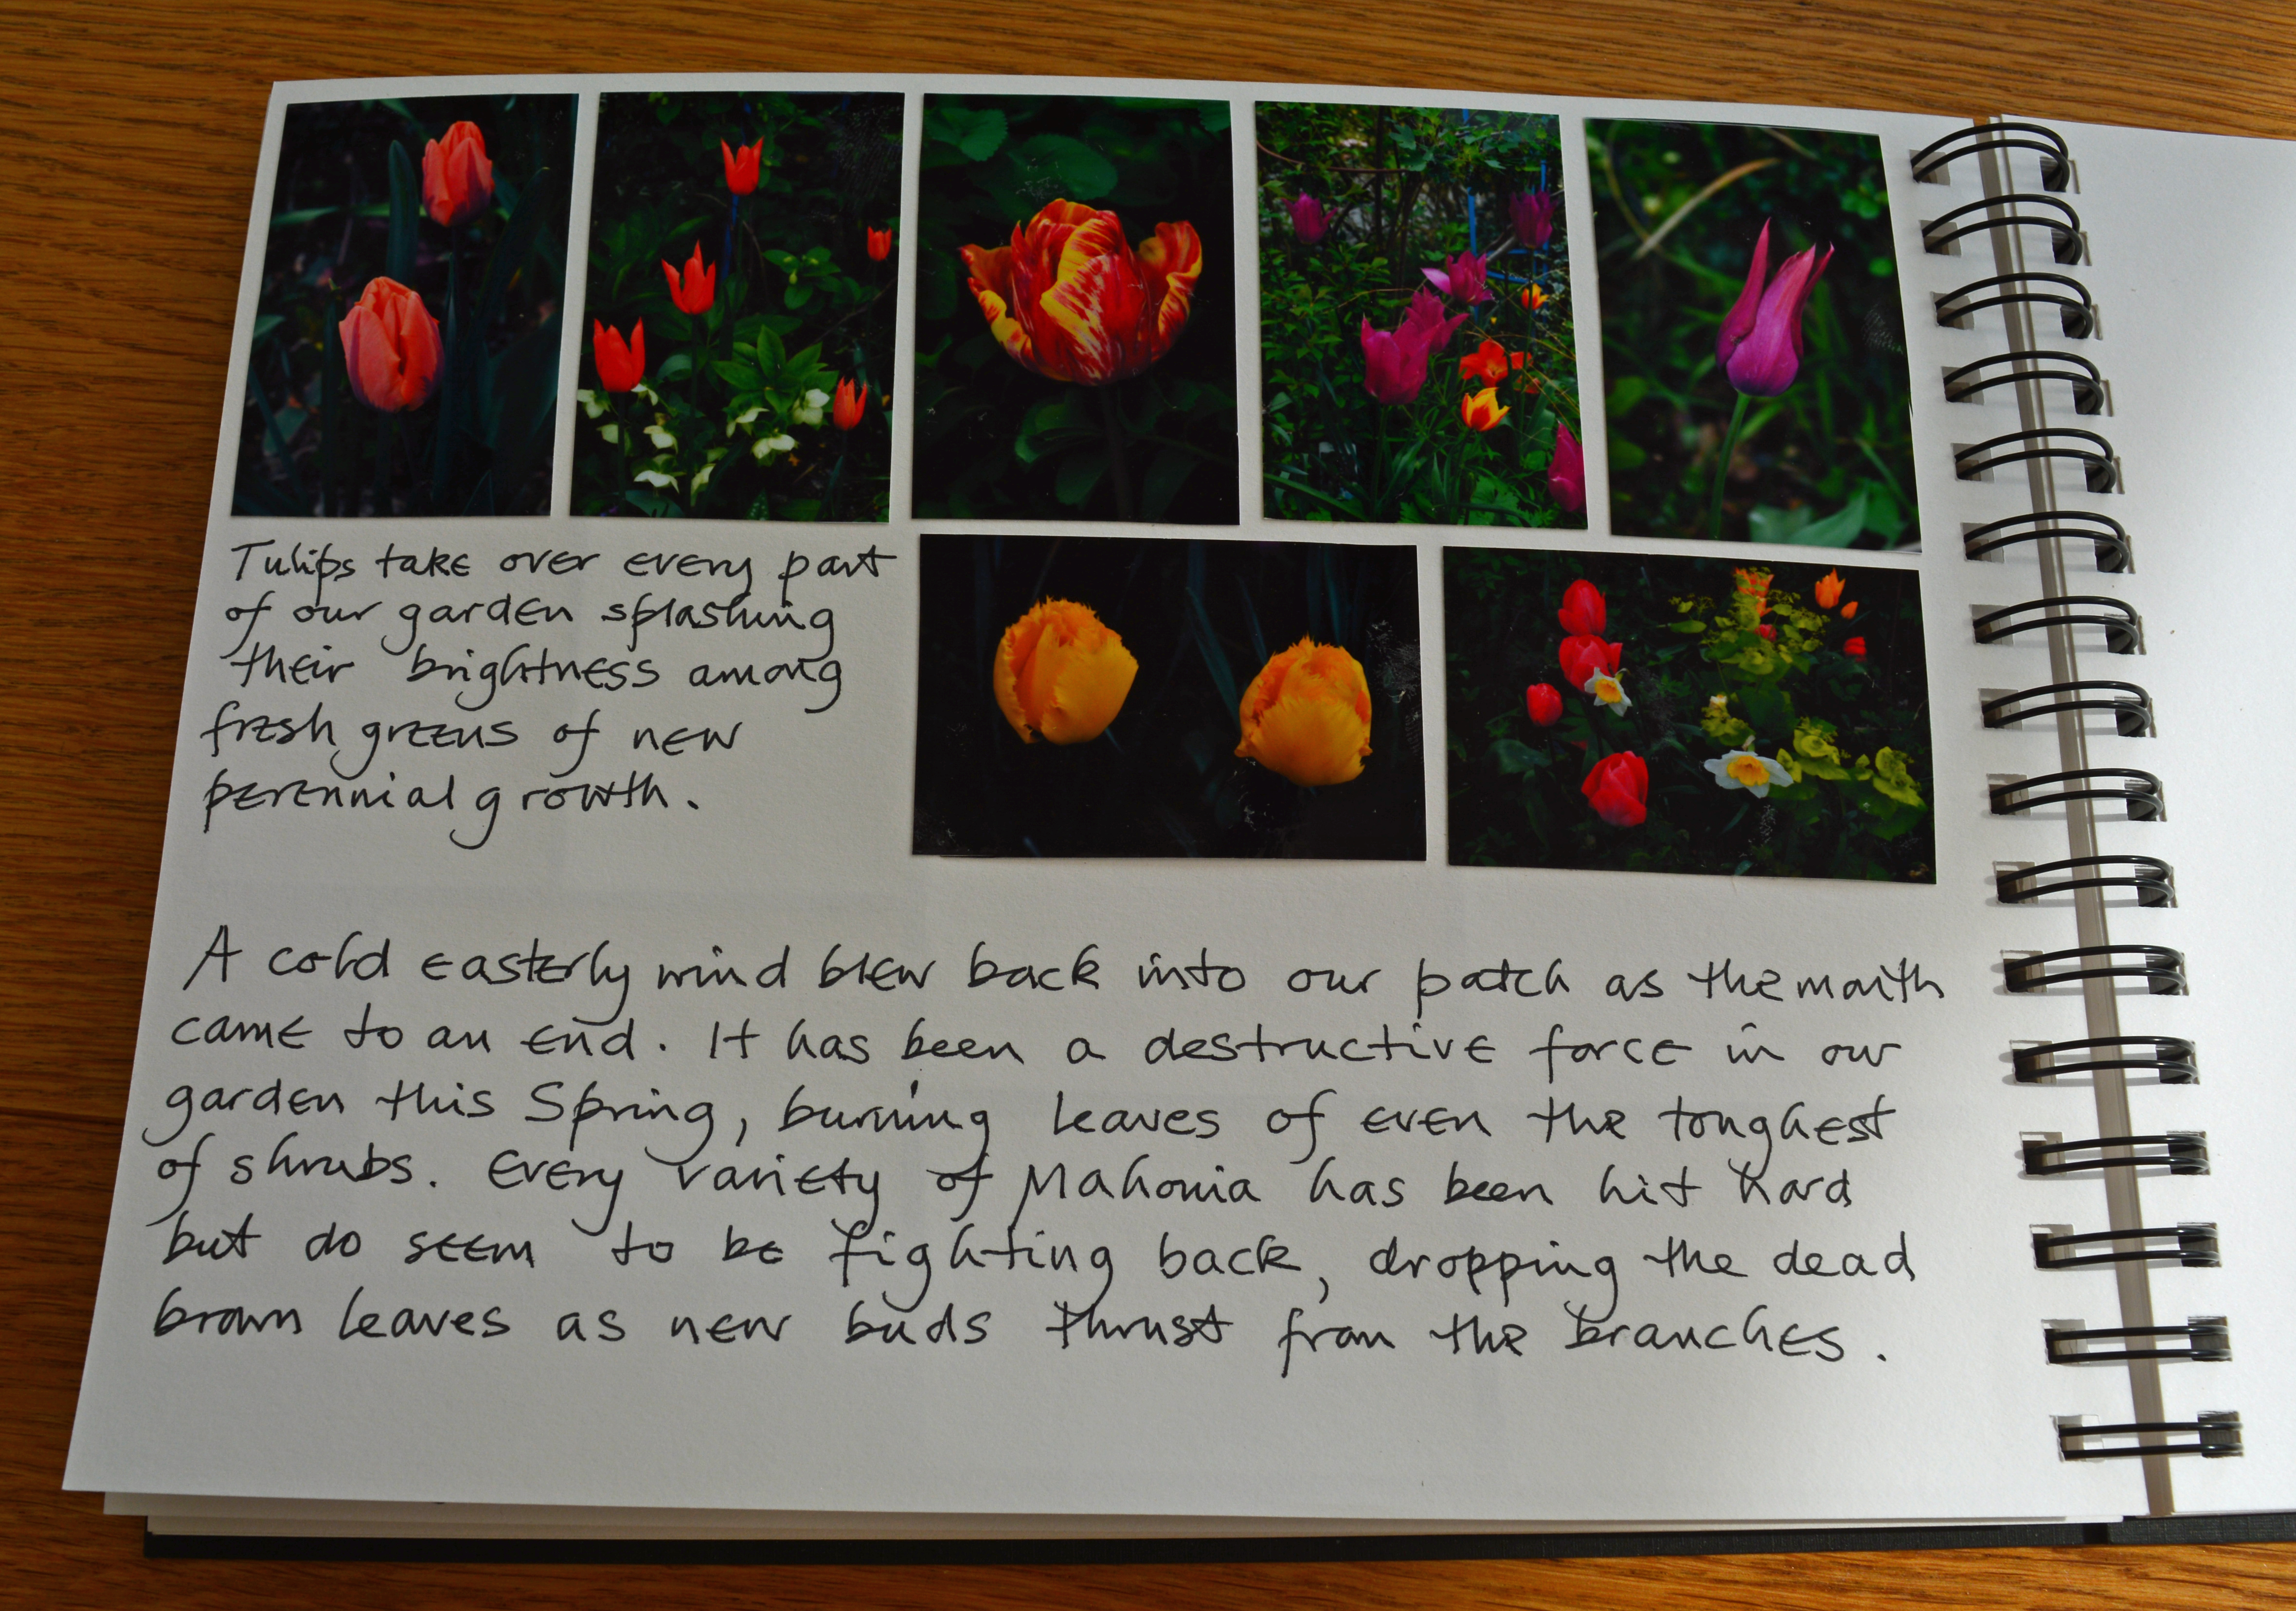 Tulips take over every part
of our garden splashing
their brightness among
fresh greens of new
perennial growth.
A cold easterly wind blew back into our patch as the month
came to an end. It has been a destructive force in our
garden this Spring, burning leaves of even the toughest
of shrubs. Every variety of Mahonia has been hit hard
but do seem to be fighting back, dropping the dead
brown leaves as new buds thrust from the branches.